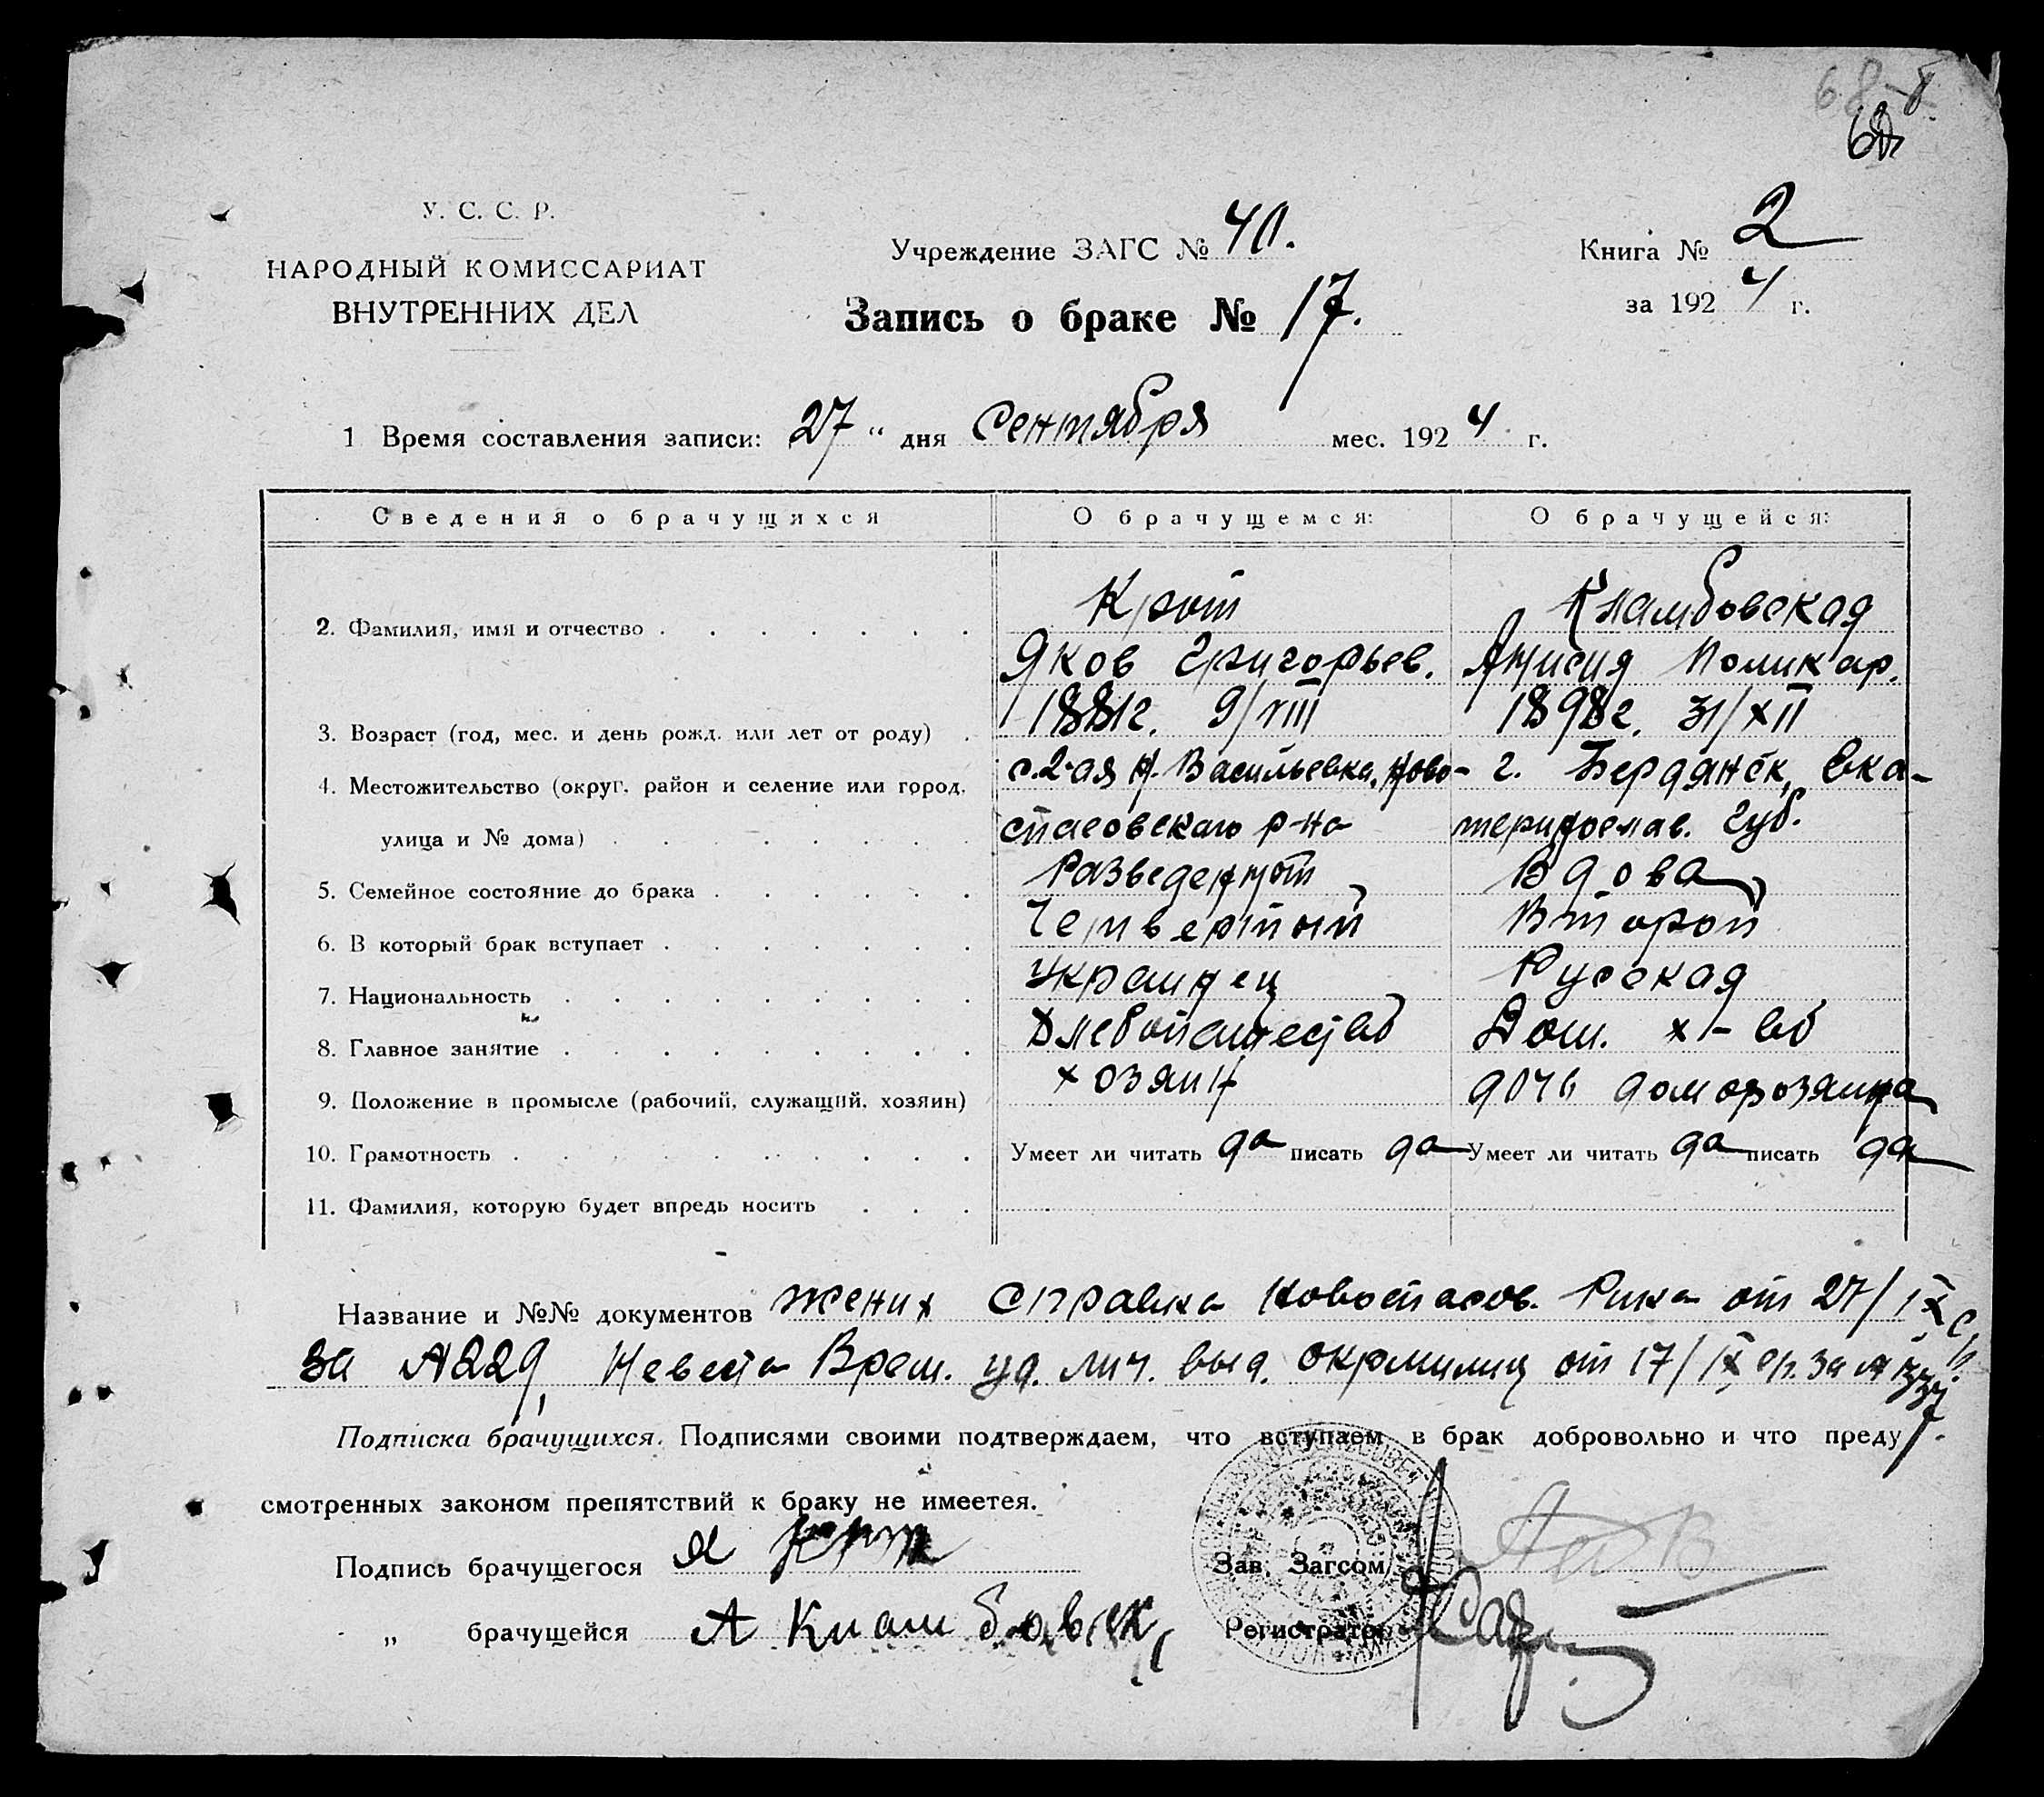 68-б
У. С. С. Р.
НАРОДНЫЙ КОМИССАРИАТ
ВНУТРЕННИХ ДЕЛ
Учреждение ЗАГС № 40.
Книга № 2
за 1924 г.
Запись о браке № 17.
1 Время составления записи: 27 " дня сентября мес. 1924 г.
Сведения о брачущихся О брачущемся: О брачущейся:
2. Фамилия, имя и отчество Крот
Яков Григорьев. Поликар.
3. Возраст (год, мес. и день рожд. или лет от роду) 1881г. 9/VIII 1898г. 31/XII
4. Местожительство (округ, район и селение или город, с. 2-ая Н. Васильевка, Ново- г. Бердянск, Ека-
улица и № дома) спасовского р-на теринослав. Губ.
5. Семейное состояние до брака Разведенный Вдова
6. В который брак вступает Четвертый Второй
7. Национальность Украинец Русская
8. Главное занятие Хлебопашество Дом. х-во
9. Положение в промысле (рабочий, служащий, хозяин) хозяин дочь домохозяина
10. Грамотность Умеет ли читать да писать да Умеет ли читать да писать да
11. Фамилия, которую будет впредь носить
Название и №№ документов жених справка Новоспасов. Рика от 27/IX с/г.
за № 229, Невеста Врем. уд. лич. выд. окрмилиц от 17/IX с/г. за №
Подписка брачущихся. Подписями своими подтверждаем, что вступаем в брак добровольно и что преду
смотренных законом препятствий к браку не имеетея.
Подпись брачущегося Я Крот
Зав. Загсом
„ брачущейся А
Регистратор